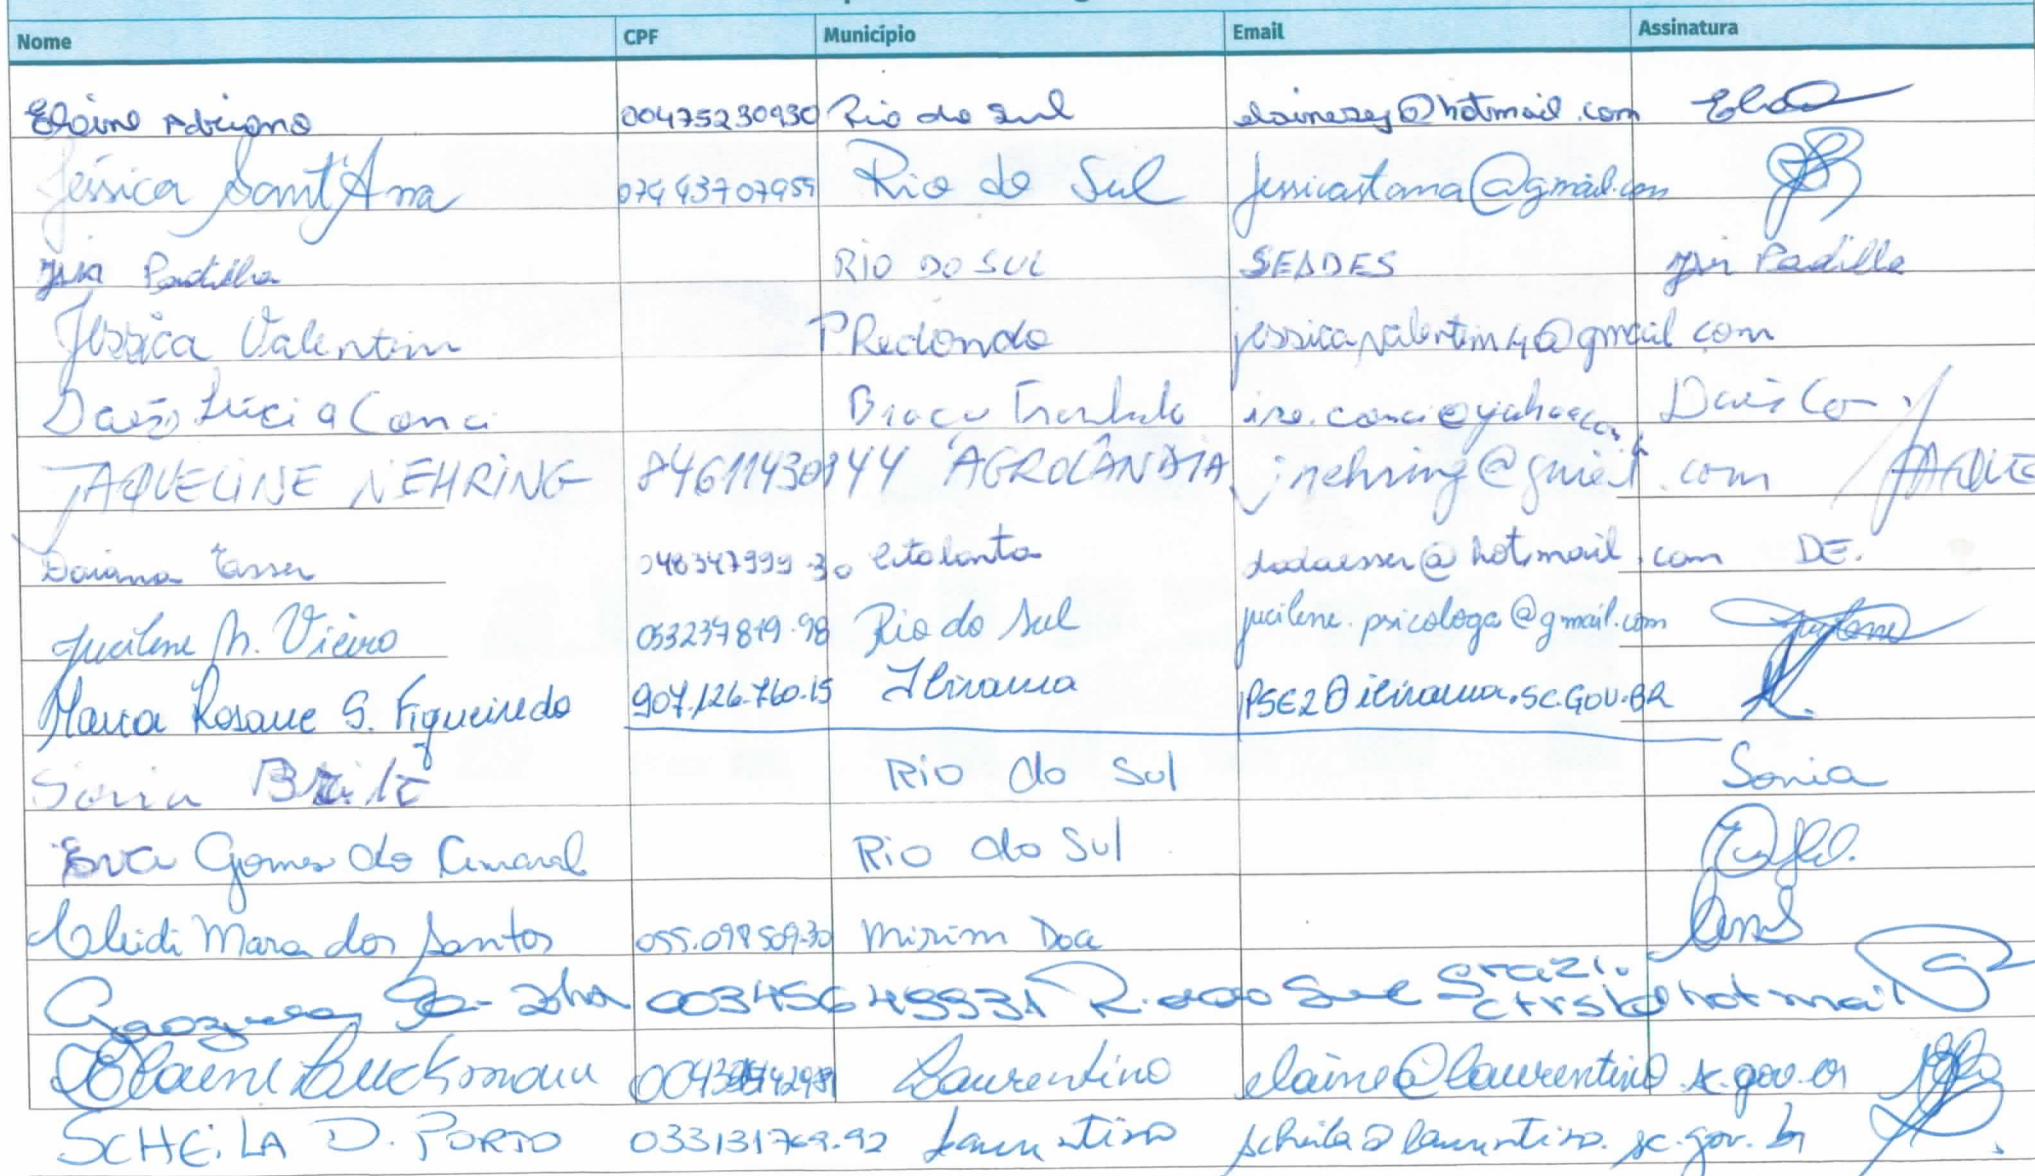 Nome CPF Município Email Assinatura
Elaine Adriano 00475230930 Rio do Sul elainesej@hotmail.com
Jéssica Sant'Ana 07443707959 Rio do Sul jessicastana@gmail.com
Padilha RIO DO SUL SEADES Padilha
Jéssica Valentim P. Redondo jessicavalentim4@gmail.com
Lúcia Conci Braço Trombudo
JAQUELINE NEHRING 84611430944 AGROLÂNDIA jnehring@gmail.com JAQUE
Daiana Esser 048347999-30 dadaesser@hotmail.com DE.
Jucilene M. Vieira 053237819-98 Rio do Sul jucilene.psicologa@gmail.com
Maria Rosane S. Figueiredo 907.126.760.15 Ibirama PSE2@ibirama.SC.GOV.BR
Sonia Rio do Sul Sonia
Eva Gomes do Amaral Rio do Sul
Cleidi Mara dos Santos 055.098509-30 Mirim Doce
00345649931 Rio do Sul
Elaine 
Laurentino elaine@laurentino.sc.gov.br
SCHEILA D. PORTO 033131769-92 Laurentino scheila@laurentino.sc.gov.br